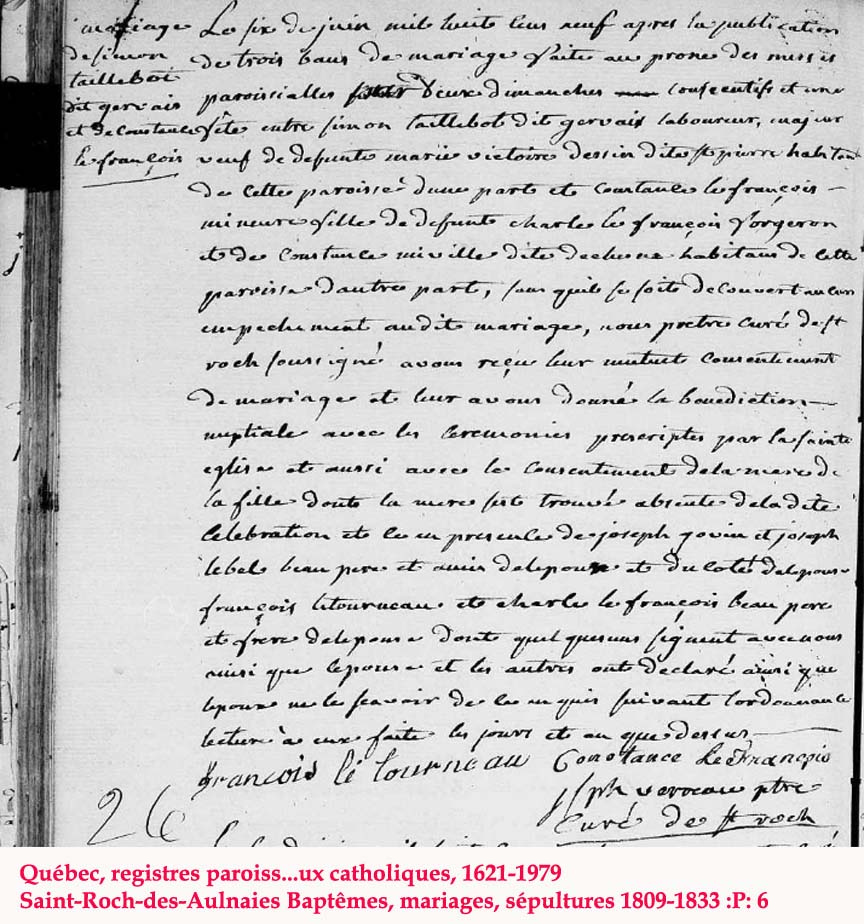 mariage
de simon
taillebot
dit gervais
et de Constance
le françois
Le six de juin mil huit cens neuf apres la publication
de trois bans de mariage faite au prone des messes
paroissialles deux dimanches consecutifs et une
fête entre simon taillebot dit gervais laboureur, majeur
veuf de defunte marie victoire dessin dite st pierre habitant
de cette paroisse d'une part et constance le françois
mineure fille de defunt charle le françois forgeron
et de Constance miville dite dechene habitans de cette
paroisse d'autre part, sans quil se soit decouvert aucun
empechement audit mariage, nous pretre curé de st
roch soussigné avons reçu leur mutuel consentement
de mariage et leur avons donné la benediction
nuptiale avec les ceremonies prescriptes par la sainte
eglise et aussi avec le consentement de la mere de
la fille dont la mere sest trouvé absente de la dite
celebration et ce en presence de joseph govin et joseph
lebel beau pere et amis de lepoux et du coté de lepouse
françois letourneau et charle le françois beau pere
et frere de lepouse dont quelquesuns signent avec nous
ainsi que lepouse et les autres ont declaré ainsi que
lepoux ne le sçavoir de ce enquis suivant lordonnance
lecture à eux faite les jours et an que dessus
françois le tourneau Constance Le François
jsph verreau ptre
curé de st roch
26
Québec, registres paroiss...ux catholiques, 1621-1979
Saint-Roch-des-Aulnaies Baptêmes, mariages, sépultures 1809-1833 :P: 6